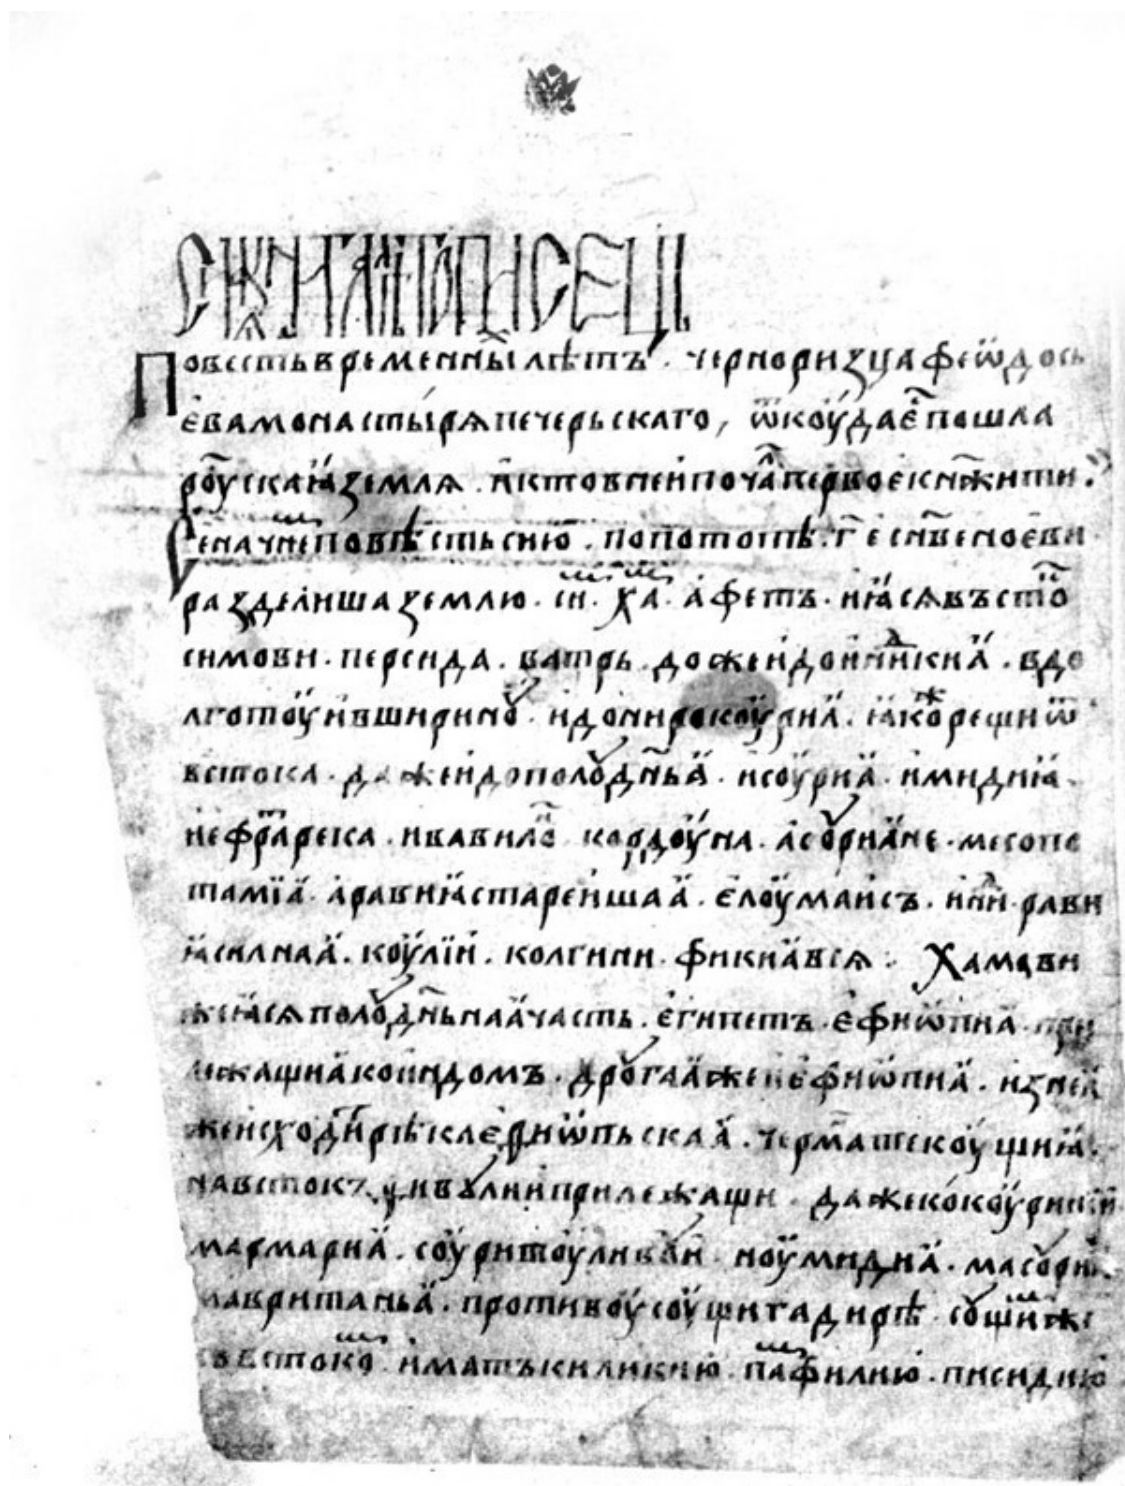 Повесть временны лѣтъ · черноризца феѡдось
ева монастырѧ печерьскаго, ѿкоуда е пошла
роускаꙗ землѧ · и кто в неи поча первое кнѧжити ·
Се начне повѣсть сию · по потопѣ · г҃ е сн҃ве ноеви
разделиша землю · си · ха · афетъ · и ꙗсѧ въсто
симови · персида · ватрь · доже и до инникиꙗ · в до
лготоу и в ширино · и до нирокоуриꙗ · ꙗко рещи ѿ
встока · даже и до полодньꙗ · и соуриꙗ · и мидиꙗ ·
и ефра река · и вавило кордоуна · асориꙗне · месопо
тамїꙗ · аравиꙗ старѣишаа · елоумаисъ · инди · рави
ꙗ силнаа · коулїи · колгини · фикиꙗ всѧ · Хамови
же ꙗсѧ полодньнаа часть · египетъ · ефиѡпиа · при
лежащиа ко индомъ · дрогаа же и ефиѡпиа · из неа
же исходи рѣкл ефиѡпьскаа · черма текоущиꙗ
на встокъ, ѳива лиѵии прилежащи · даже ко коуриниїи
мармариа · соурито улива и · ноумидиа · масориꙗ
мавританьа · противоу соущи гадирѣ · сущи же
ко встоко · иматъ киликию · памфилию · писидию